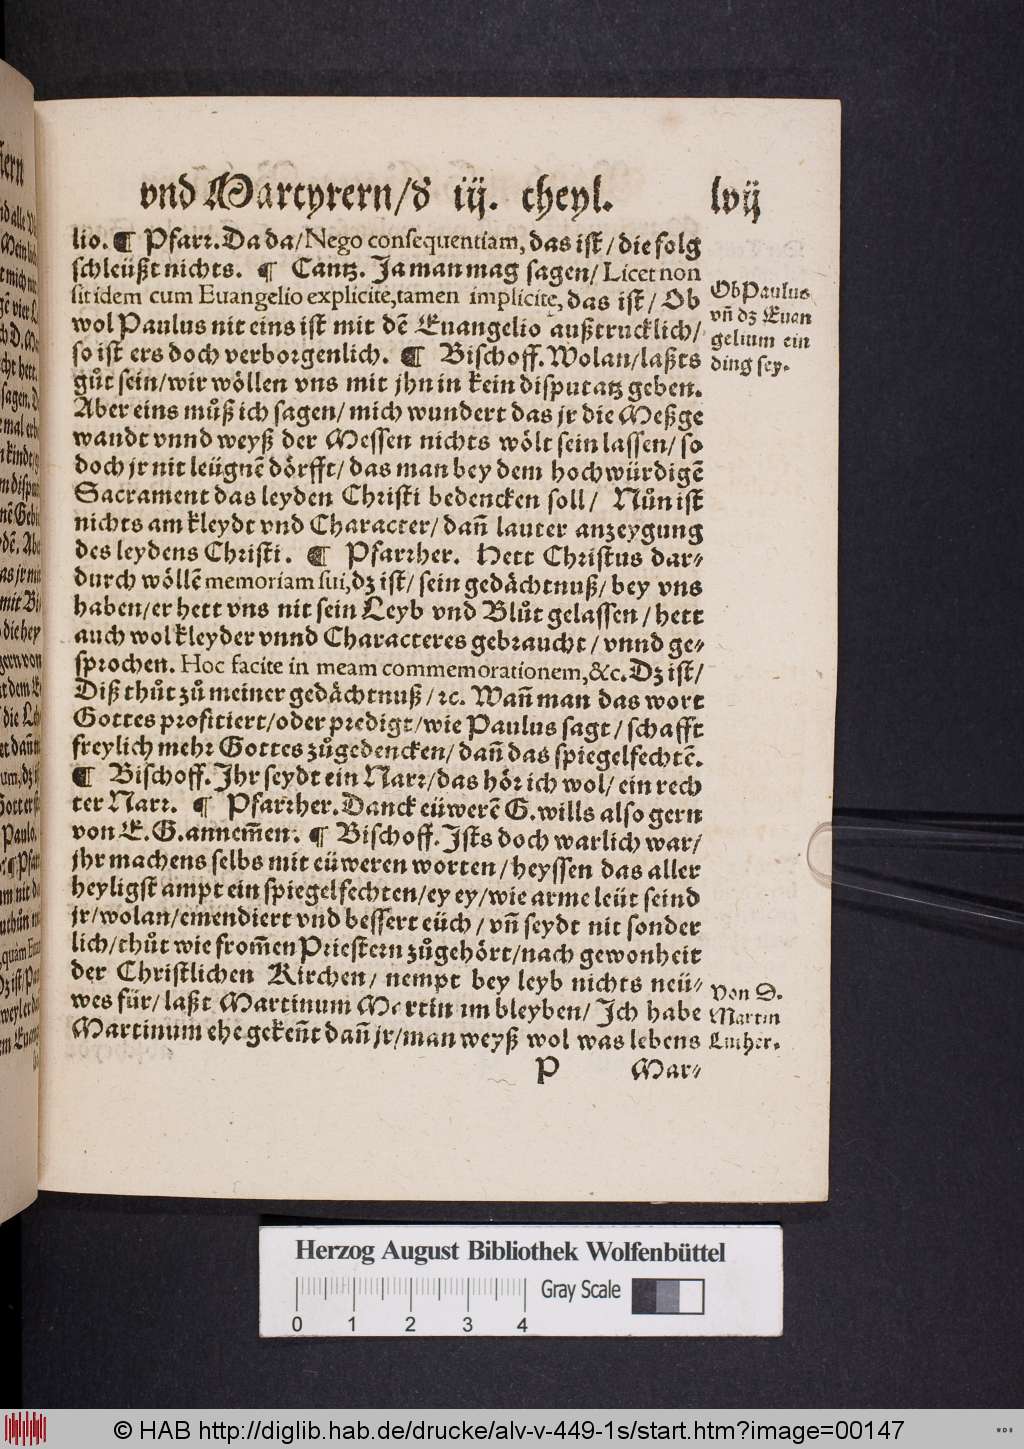 vnd Martyrern/ď iij. theyl. lvij
lio. ¶ Pfarr. Da da/ Nego consequentiam, das ist/ die folg
schleüßt nichts. ¶ Cantz. Ja man mag sagen/ Licet non
sit idem cum Euangelio explicite, tamen implicite, das ist/ Ob
wol Paulus nit eins ist mit dē Euangelio außtrucklich/
so ist ers doch verborgenlich. ¶ Bischoff. Wolan/ laßts
gůt sein/ wir wöllen vns mit jhn in kein disputatz geben.
Aber eins můß ich sagen/ mich wundert das jr die Meßge
wandt vnnd weyß der Messen nichts wölt sein lassen/ so
doch jr nit leügnē dörfft/ das man bey dem hochwürdigē
Sacrament das leyden Christi bedencken soll/ Nůn ist
nichts am kleydt vnd Character/ dañ lauter anzeygung
des leydens Christi. ¶ Pfarrher. Hett Christus dar-
durch wöllē memoriam sui, dz ist/ sein gedächtnuß/ bey vns
haben/ er hett vns nit sein Leyb vnd Blůt gelassen/ hett
auch wol kleyder vnnd Characteres gebraucht/ vnnd ge-
sprochen. Hoc facite in meam commemorationem, &c. Dz ist/
Diß thůt zů meiner gedächtnuß/ ꝛc. Wañ man das wort
Gottes profitiert/ oder predigt/ wie Paulus sagt/ schafft
freylich mehr Gottes zůgedencken/ dañ das spiegelfechtē.
¶ Bischoff. Jhr seydt ein Narr/ das hör ich wol/ ein rech
ter Narr. ¶ Pfarrher. Danck eüwerē G. wills also gern
von E. G. annem̄en. ¶ Bischoff. Jsts doch warlich war/
jhr machens selbs mit eüweren worten/ heyssen das aller
heyligst ampt ein spiegelfechten/ ey ey/ wie arme leüt seind
jr/ wolan/ emendiert vnd bessert eüch/ vñ seydt nit sonder
lich/ thůt wie from̄en Priestern zůgehört/ nach gewonheit
der Christlichen Kirchen/ nempt bey leyb nichts neü-
wes für/ laßt Martinum Martinum bleyben/ Jch habe
Martinum ehe gekeñt dañ jr/ man weyß wol was lebens
P Mar-
Ob Paulus
vñ dz Euan
gelium ein
ding sey.
Von D.
Martin
Luther.
Herzog August Bibliothek Wolfenbüttel
0 1 2 3 4
Gray Scale
© HAB http://diglib.hab.de/drucke/alv-v-449-1s/start.htm?image=00147